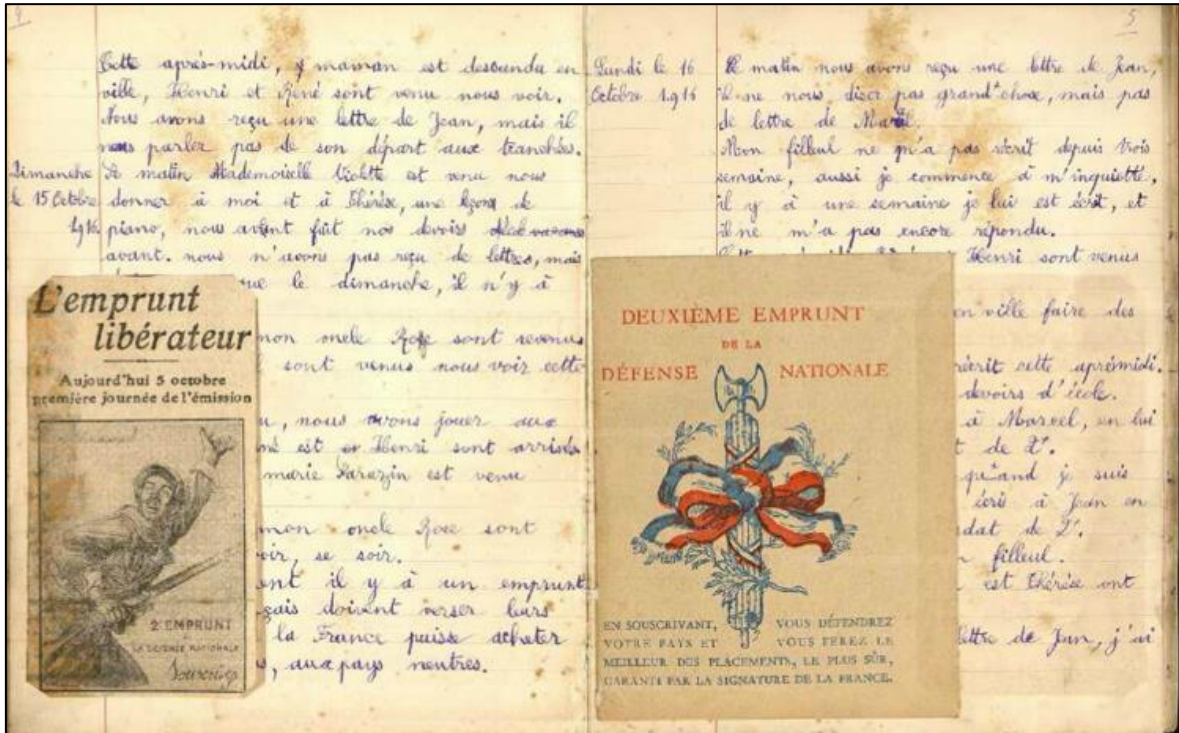 4
Cette après-midi, maman est descendu en
ville, Henri et René sont venu nous voir.
Nous avons reçu une lettre de Jean, mais il
nous parler pas de son départ aux tranchées.
Dimanche
le 15 Octobre
1916
matin Mademoiselle Violette est venu nous
donner à moi et à Thérèse, une leçon de
piano, nous avont fait nos devoirs
avant. nous n'avons pas reçu de lettres, mais
que le dimanche, il n'y à
mon oncle sont revenus
sont venus nous voir cette
nous avons jouer aux
est Henri sont arrivés
marie Sarazin est venu
mon oncle sont
se soir.
il y à un emprunt
doivent verser leurs
la France puisse acheter
aux pays neutres.
L'emprunt
libérateur
Aujourd'hui 5 octobre
première journée de l'émission
2e EMPRUNT
DE
LA DEFENSE NATIONALE
Souscrivez
5
Lundi le 16
Octobre 1916
matin nous avons reçu une lettre de Jean,
il ne nous pas grand'chose, mais pas
de lettre de
Mon filleul ne m'a pas écrit depuis trois
semaine, aussi je commence à m'inquietté,
il y à une semaine je lui est écrit, et
il ne m'a pas encore répondu.
Henri sont venus
en ville faire des
cette aprèsmidi.
devoirs d'école.
à Marcel, en lui
de 2f.
quand je suis
à Jean en
de 2f.
filleul.
est Thérèse ont
lettre de Jean, j'ai
DEUXIÈME EMPRUNT
DE LA
DÉFENSE NATIONALE
EN SOUSCRIVANT, VOUS DÉFENDREZ
VOTRE PAYS ET VOUS FEREZ LE
MEILLEUR DES PLACEMENTS, LE PLUS SÛR,
GARANTI PAR LA SIGNATURE DE LA FRANCE.